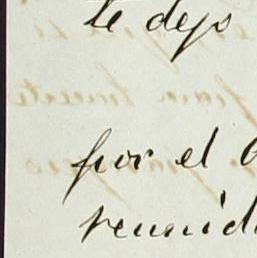 te dejo
por el
reunid